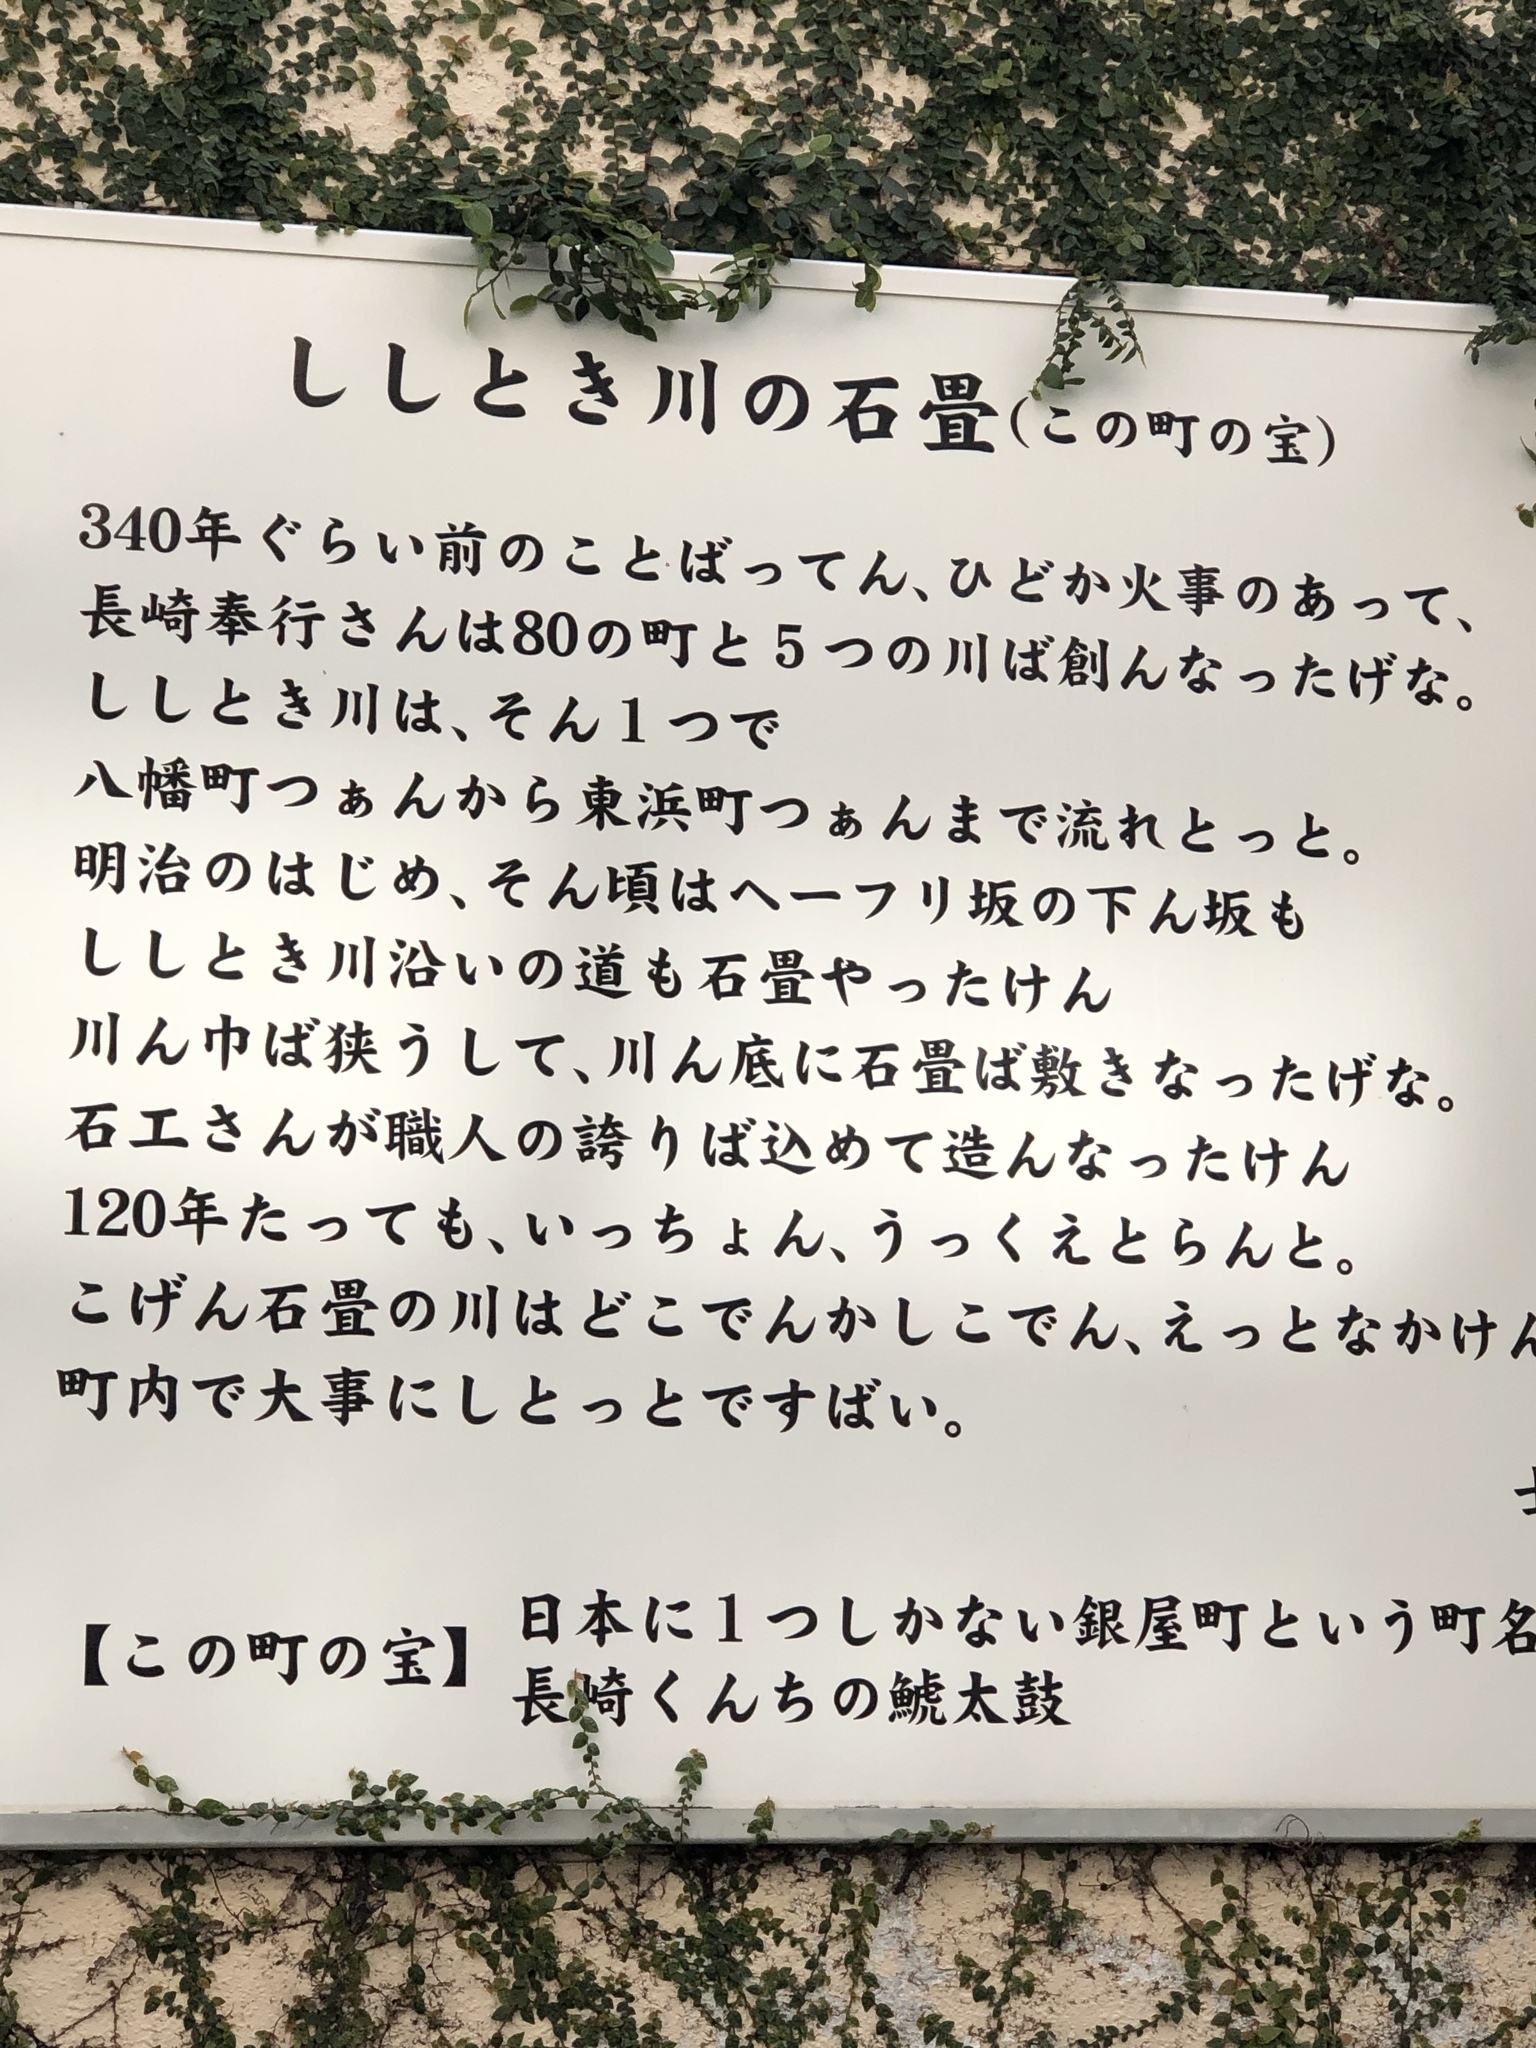 ししとき川の石畳(この町の宝)
340年ぐらい前のことばってん、ひどか火事のあって、
長崎奉行さんは80の町と5つの川ば創んなったげな。
ししとき川は、そん1つで
八幡町つぁんから東浜町つぁんまで流れとっと。
明治のはじめ、そん頃はヘーフリ坂の下ん坂も
ししとき川沿いの道も石畳やったけん
川ん巾ば狭うして、川ん底に石畳ば敷きなったげな。
石工さんが職人の誇りば込めて造んなったけん
120年たっても、いっちょん、うっくえとらんと。
こげん石畳の川はどこでんかしこでん、えっとなかけん
町内で大事にしとっとですばい。
【この町の宝】
日本に1つしかない銀屋町という町名
長崎くんちの鯱太鼓